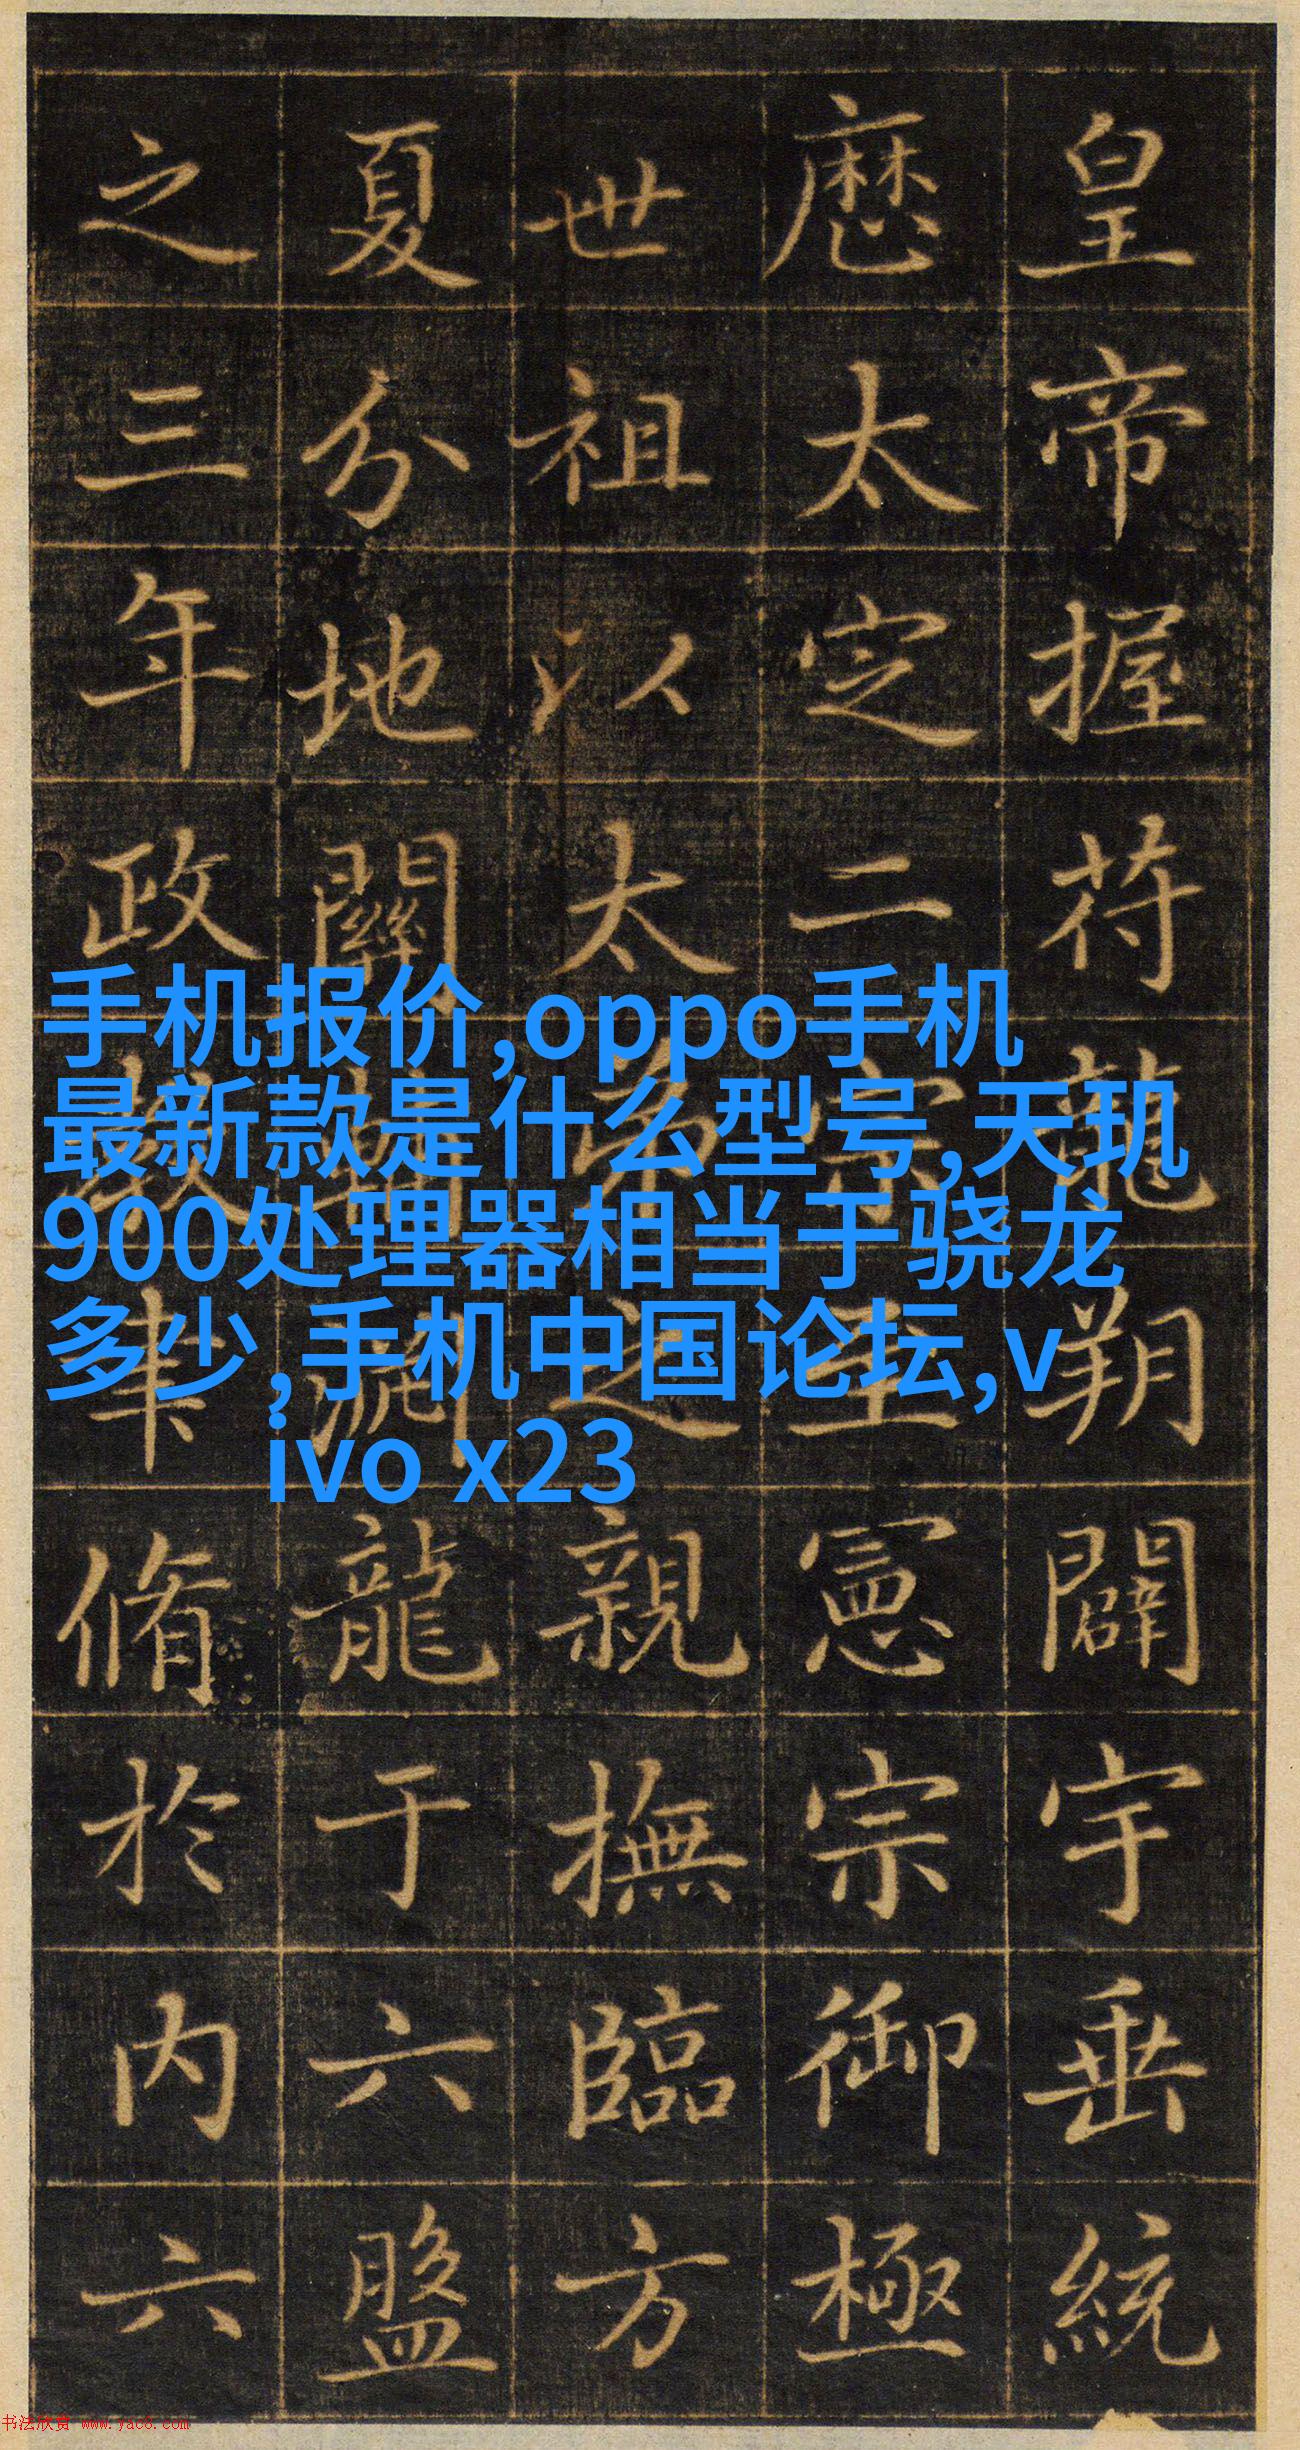 皇帝握符龍朔闢宇垂統
歷太定二宗至憲宗御極
世祖以太弟之親撫臨方
夏分地關輔淵龍于六盤
之三年政教聿脩於内六
手机报价,oppo手机
最新款是什么型号,天玑
900处理器相当于骁龙
多少,手机中国论坛,v
ivo x23
书法欣赏 www.yac8.com